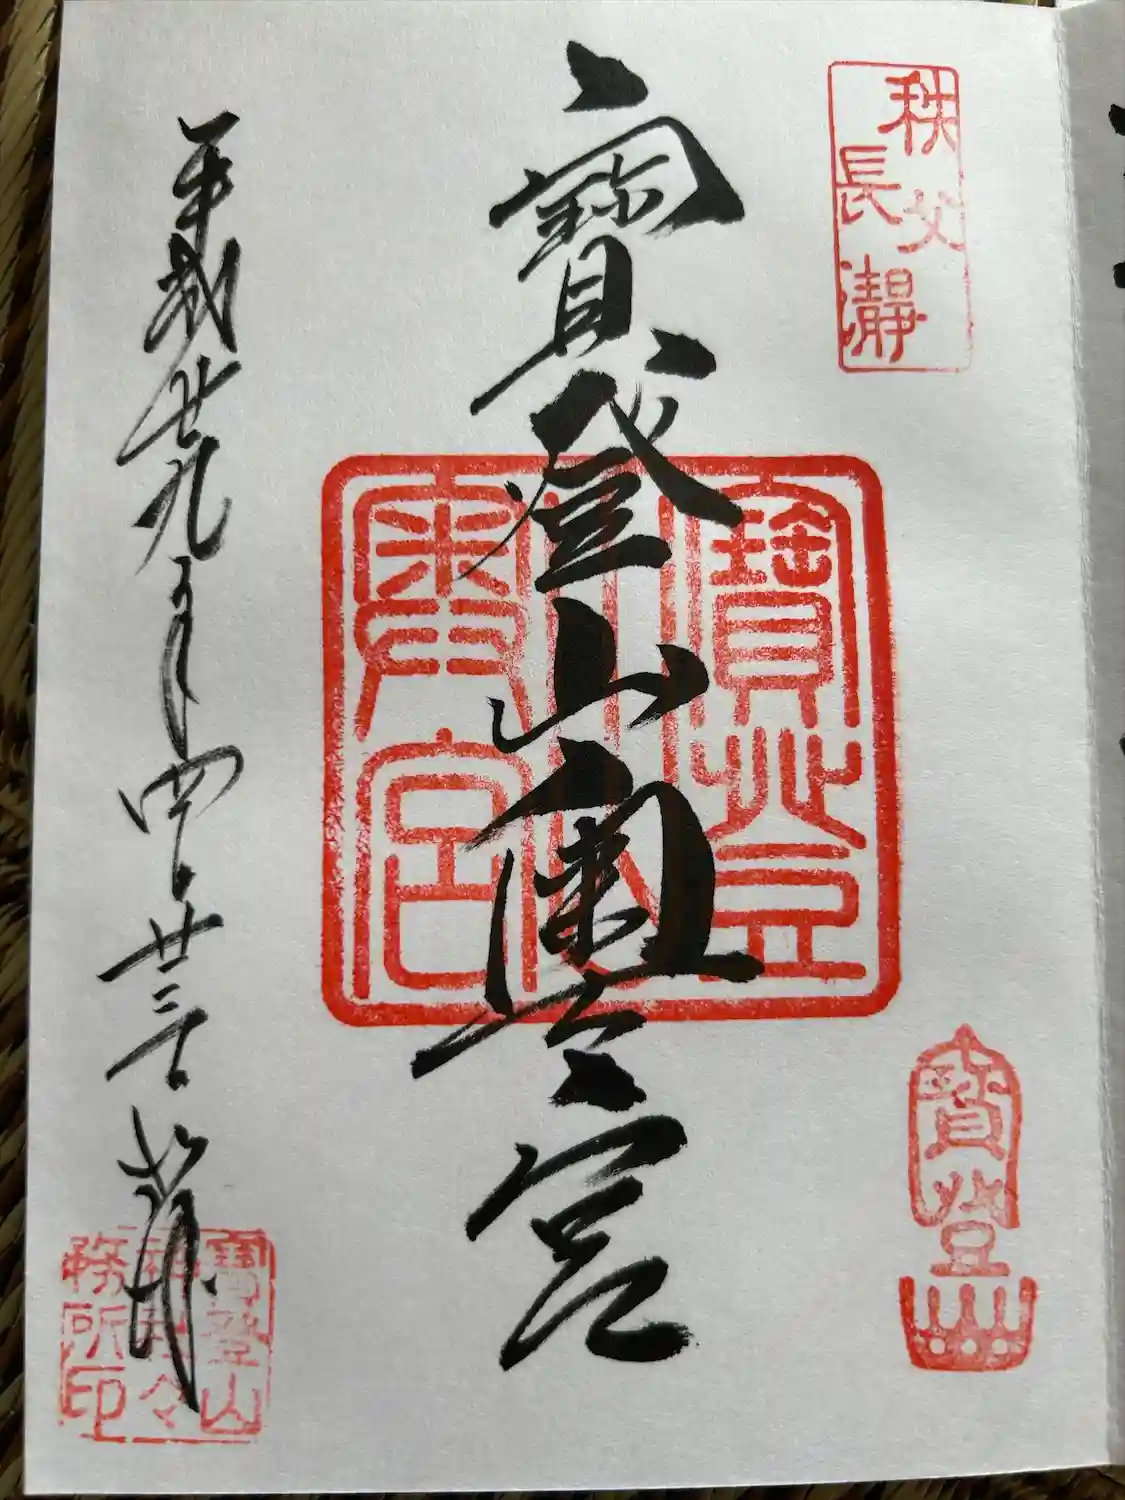 秩父
長瀞
寶登山奧宮
寶登
山
奧宮
寶登山
平成廿九年四月廿三日
寶登山
神社々
務所印